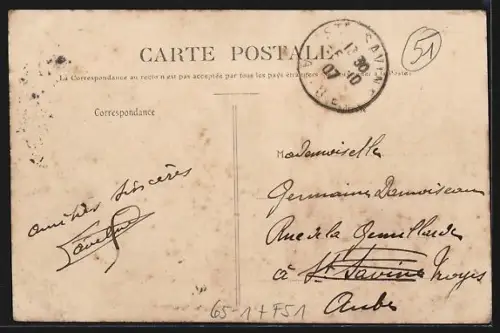 CARTE POSTALE
La Correspondance au recto n'est pas acceptée par tous les pays étrangers à la Poste)
Correspondance
amitiés sincères
51
STE SAVINE
13 30
5 -10
07
Mademoiselle
Germaine Damoiseau
Rue de la
à Ste Savine Troyes
Aube
65-1+F51